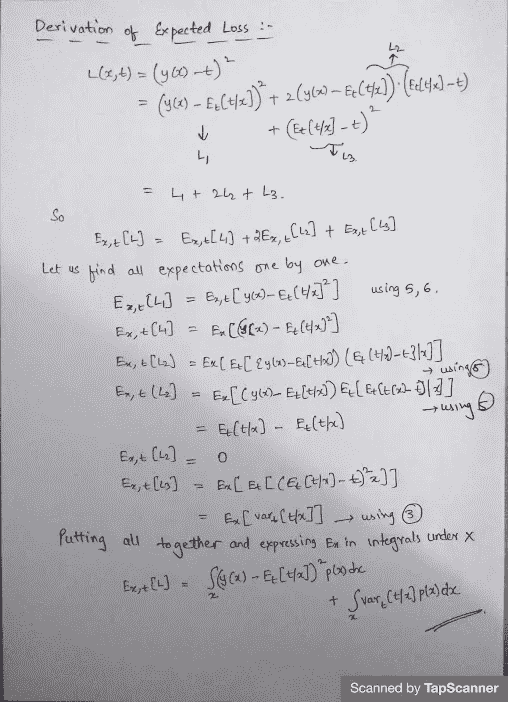 Derivation of Expected Loss :-
L(x,t) = (y(x) - t)²
L2
= (y(x) - Et[t/x])² + 2(y(x) - Et[t/x])·(Et[t/x] - t)
+ (Et[t/x] - t)²
↓ L1
↓ L3
= L1 + 2L2 + L3.
So
Ex,t[L] = Ex,t[L1] + 2Ex,t[L2] + Ex,t[L3]
Let us find all expectations one by one.
Ex,t[L1] = Ex,t[y(x) - Et[t/x]²] using 5, 6.
Ex,t[L1] = Ex[(y(x) - Et[t/x])²]
Ex,t[L2] = Ex[Et[{y(x) - Et[t/x]) (Et[t/x) - t}|x]]
→ using 5
Ex,t[L2] = Ex[(y(x) - Et[t/x]) Et[Et(t(x) - t)|x]]
→ using 5
= Et[t/x] - Et[t/x)
Ex,t[L2] = 0
Ex,t[L3] = Ex[Et[(Et[t/x] - t)²x]]
= Ex[vart[t/x]] → using 3
Putting all together and expressing Ex in integrals under x
Ex,t[L] = ∫(y(x) - Et[t/x])² p(x)dx
x
+ ∫vart[t/x] p(x)dx
x
Scanned by TapScanner